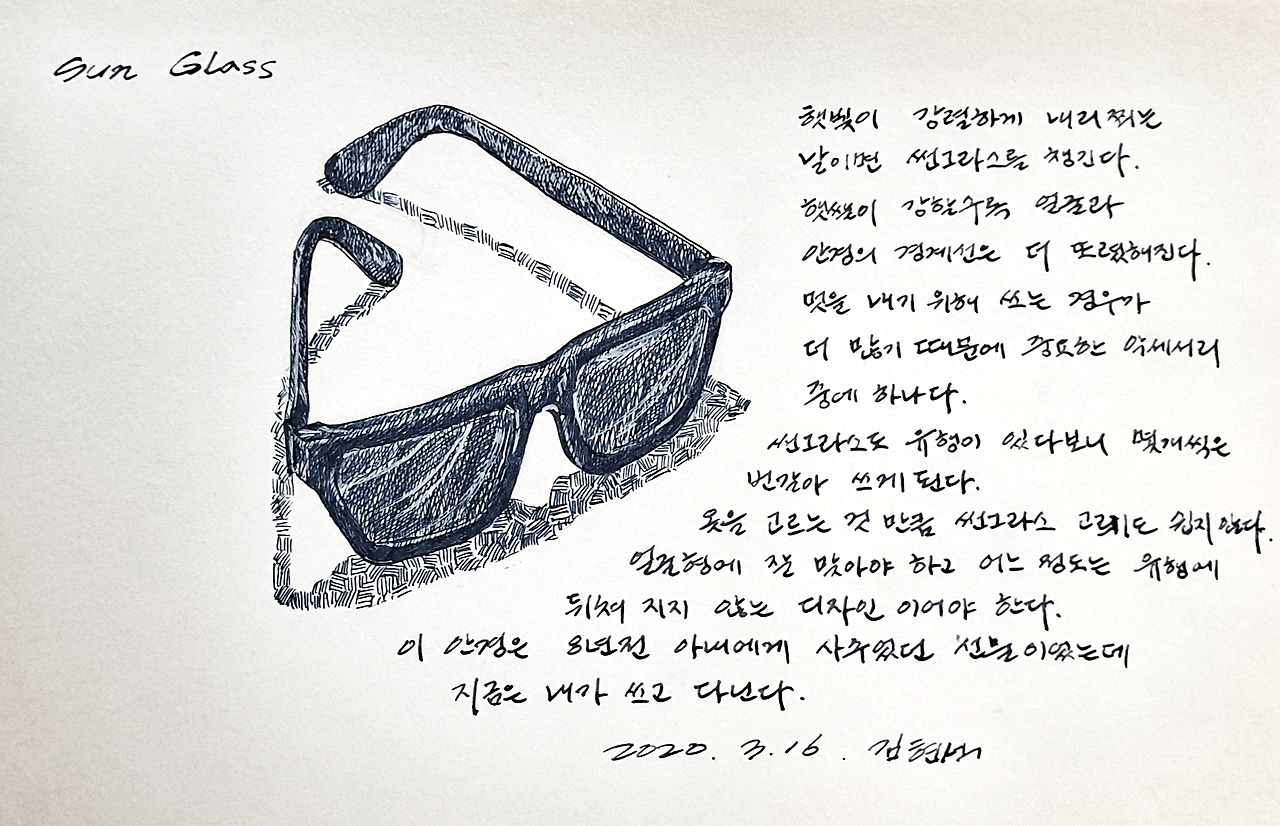 Sun Glass
햇빛이 강렬하게 내리쬐는
날이면 썬그라스를 챙긴다.
햇쌀이 강할수록 얼굴과
안경의 경계선은 더 또렸해진다.
멋을 내기 위해 쓰는 경우가
더 많기 때문에 중요한 악세서리
중에 하나다.
썬그라스도 유행이 있다보니 몇개씩은
번갈아 쓰게 된다.
옷을 고르는 것 만큼 썬그라스 고르기도 쉽지 않다.
얼굴형에 잘 맞아야 하고 어느 정도는 유행에
뒤쳐 지지 않는 디자인 이어야 한다.
이 안경은 8년전 아내에게 사주었던 선물이었는데
지금은 내가 쓰고 다닌다.
2020. 3. 16 .